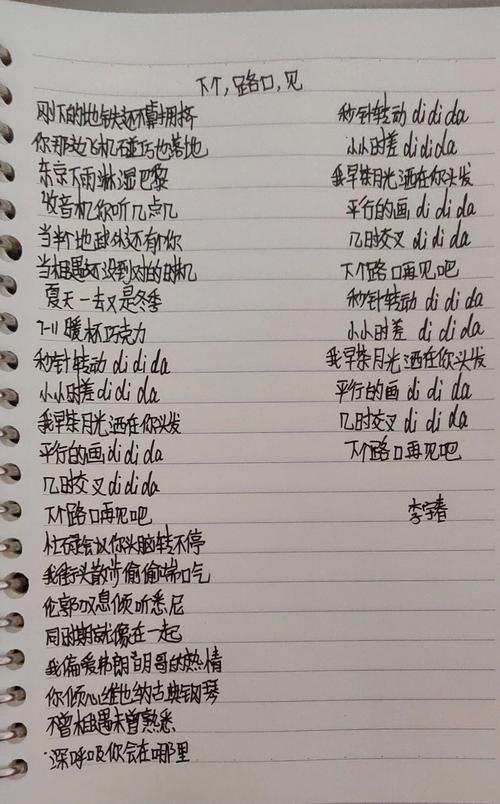 下个,路口,见
刚下的地铁还算拥挤
你那边飞机碰巧也落地
东京下雨淋湿巴黎
收音机你听几点几
当半个地球外还有个你
当相遇还没到对的时机
夏天一去又是冬季
7-11暖杯巧克力
秒针转动 di di da
小小时差 di di da
我早条月光洒在你头发
平行的画 di di da
几时交叉 di di da
下个路口再见吧
忙碌会议你头脑转不停
我街头散步偷偷喘口气
伦敦叹息倾听悉尼
同时期就像在一起
我偏爱弗朗明哥的热情
你倾心维也纳古典钢琴
不曾相遇未曾熟悉
深呼吸你会在哪里
秒针转动 di di da
小小时差 di di da
我早条月光洒在你头发
平行的画 di di da
几时交叉 di di da
下个路口再见吧
秒针转动 di di da
小小时差 di di da
我早条月光洒在你头发
平行的画 di di da
几时交叉 di di da
下个路口再见吧
李宇春